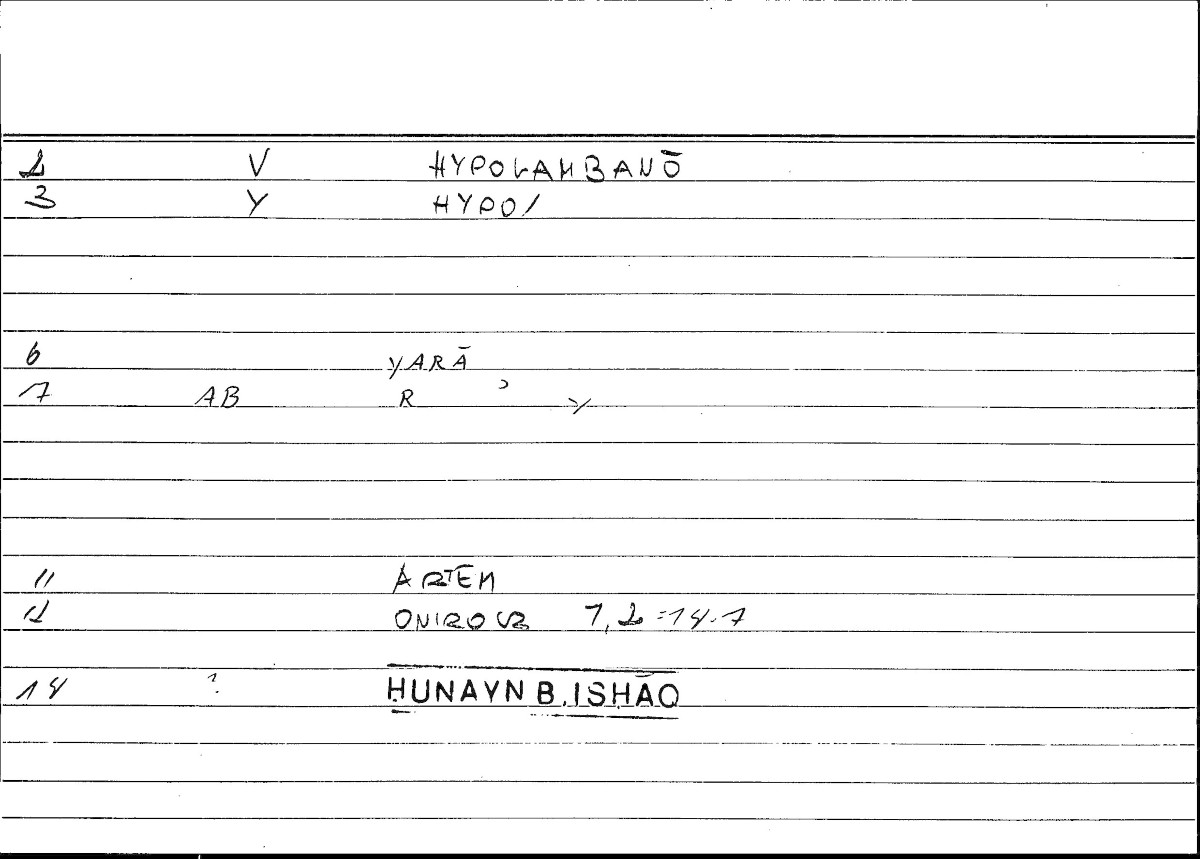 2 V HYPOLAMBANŌ
3 Y HYPO/
6 YARĀ
7 AB R ʾ Y
11 ARTEM
12 ONIROCR 1,2=14.7
14 ? ḤUNAYN B. ISḤĀQ